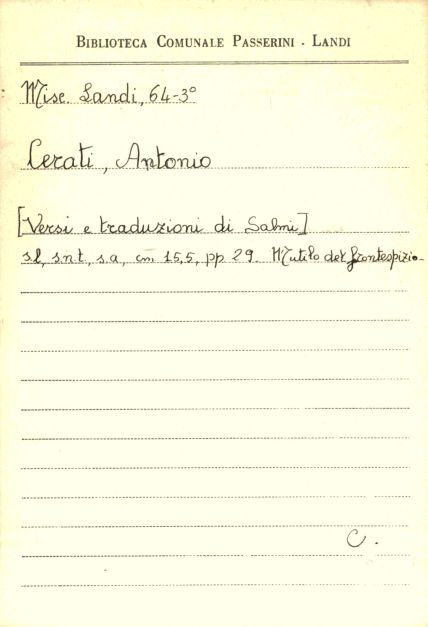 BIBLIOTECA COMUNALE PASSERINI - LANDI
Misc. Landi, 64-3°
Cerati, Antonio
[Versi e traduzioni di Salmi]
s.l, s.n.t., s.a., cm 15,5, pp 29. Mutilo del frontespizio-
C.